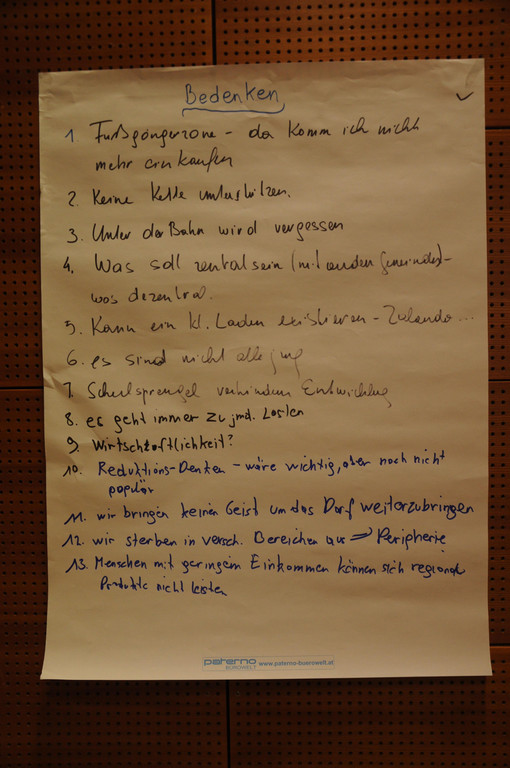 Bedenken
1. Fußgängerzone - da komm ich nicht
mehr einkaufen
2. Keine Kette unterstützen.
3. Unter der Bahn wird vergessen
4. Was soll zentral sein (mit anden Gemeinden)-
was dezentral.
5. Kann ein kl. Laden existieren - Zalando...
6. es sind nicht alle jung
7. Schulsprengel verhindern Entwicklung
8. es geht immer zu jmd. Lasten
9. Wirtschaftlichkeit?
10. Reduktions-Denken - wäre wichtig, aber noch nicht
populär
11. wir bringen keinen Geist um das Dorf weiterzubringen
12. wir sterben in versch. Bereichen aus => Peripherie
13. Menschen mit geringem Einkommen können sich regionale
Produkte nicht leisten
paterno www.paterno-buerowelt.at
BÜROWELT